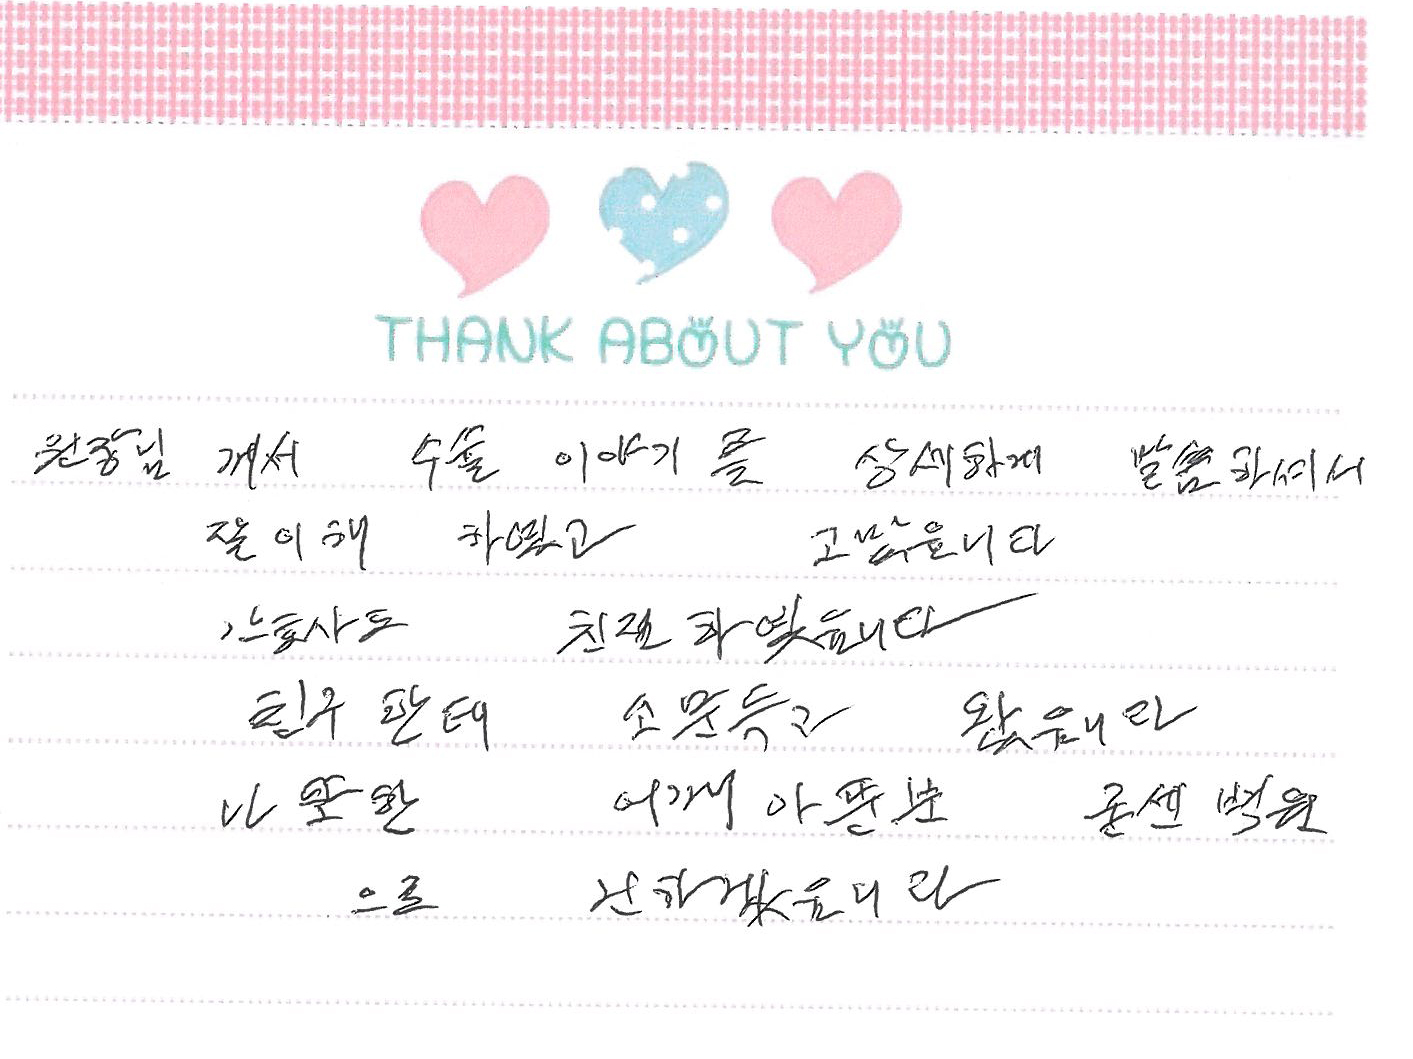 THANK ABOUT YOU
원장님 께서 수술 이야기를 상세하게 말씀하셔서
잘 이해 하였고 고맙습니다
간호사도 친절 하였습니다
친구 한테 소문듣고 왔습니다
나 또한 어깨 아픈분 굳센 병원
으로 전하겠습니다